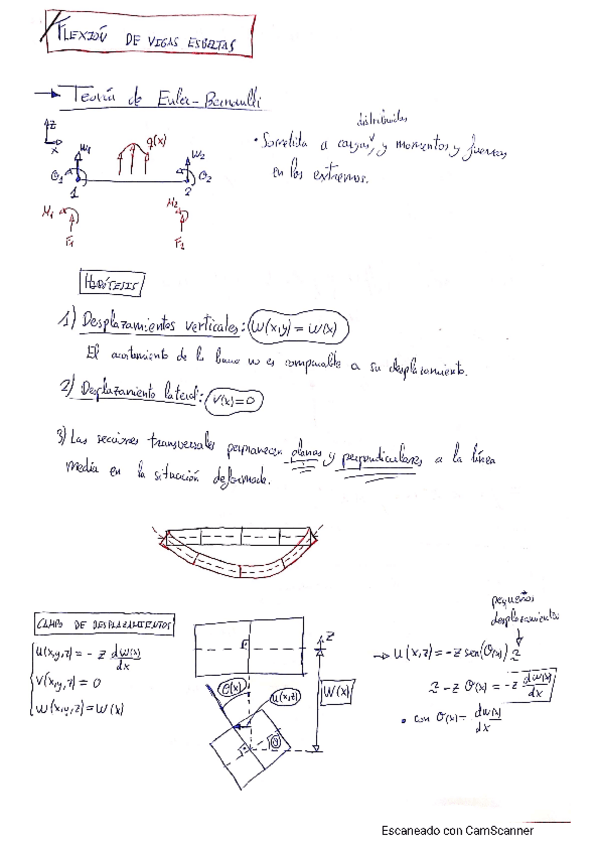 FLEXIÓN DE VIGAS ESBELTAS
→ Teoría de Euler-Bernoulli
z
x
w1
q(x)
w2
θ1
θ2
1
2
M1
F1
F2
distribuidas
• Sometida a cargas, y momentos y fuerzas
en los extremos.
HIPÓTESIS
1) Desplazamientos verticales: w(x,y) = w(x)
El acortamiento de la barra no es comparable a su desplazamiento.
2) Desplazamiento lateral: v(x)=0
3) Las secciones transversales permanecen planas y perpendiculares a la línea
media en la situación deformada.
CAMPO DE DESPLAZAMIENTOS
u(x,y,z) = - z dw(x)/dx
v(x,y,z) = 0
w(x,y,z) = w(x)
z
θ(x)
u(x,z)
W(x)
θ
pequeños
desplazamientos
→ u(x,z) = -z sen(θ(x)) ≃
≃ -z θ(x) = -z dw(x)/dx
• con θ(x) = dw(x)/dx
Escaneado con CamScanner